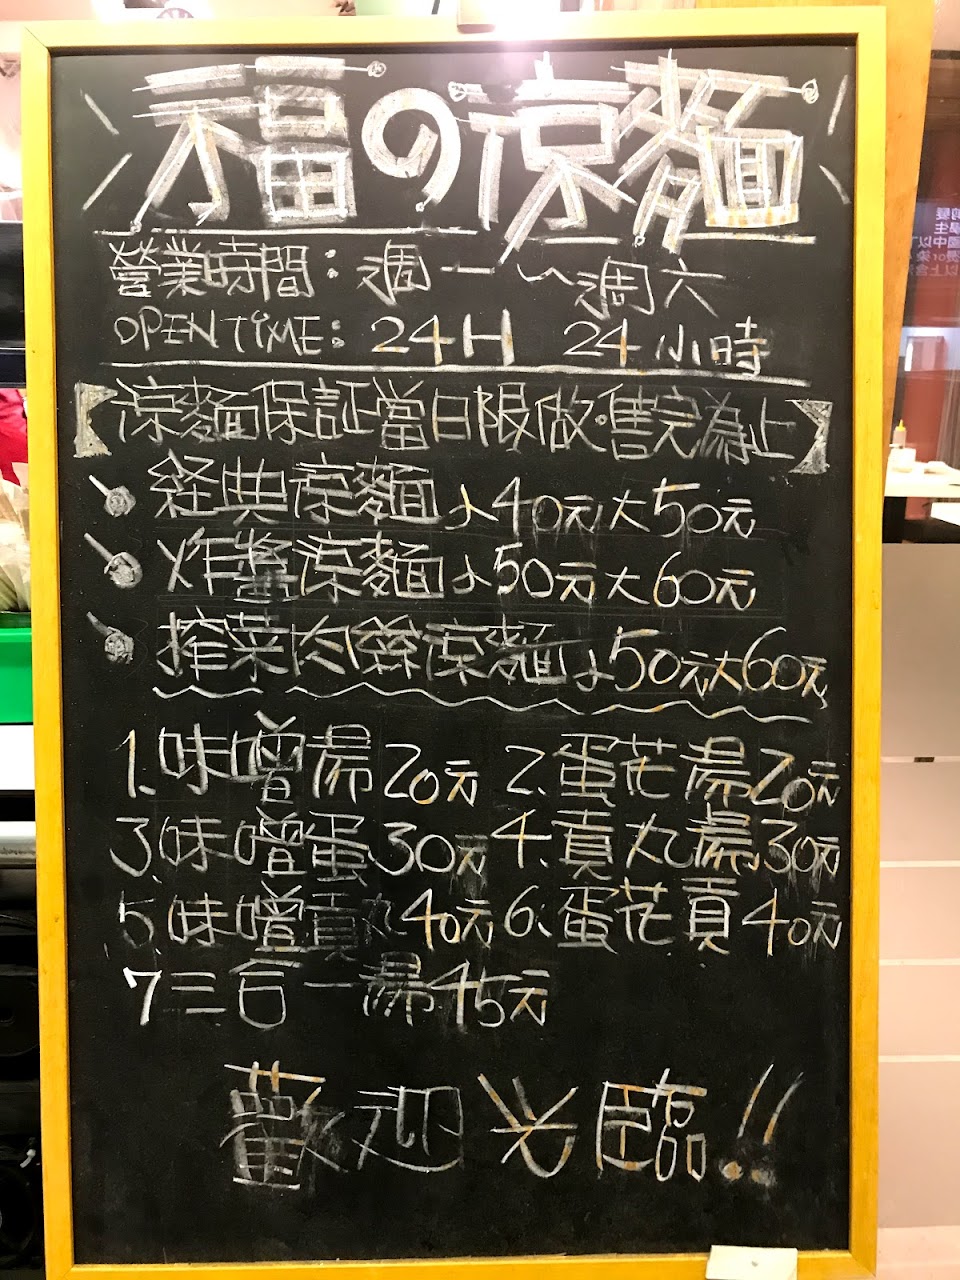 福の涼麵
營業時間：週一～週六
OPEN TIME: 24H 24小時
【涼麵保証當日限做·售完為止】
経典涼麵小40元大50元
炸醬涼麵小50元大60元
搾菜肉絲涼麵小50元大60元
1.味噌湯20元 2.蛋花湯20元
3.味噌蛋30元 4.貢丸湯30元
5.味噌貢丸40元 6.蛋花貢40元
7三合一湯45元
歡迎光臨!!